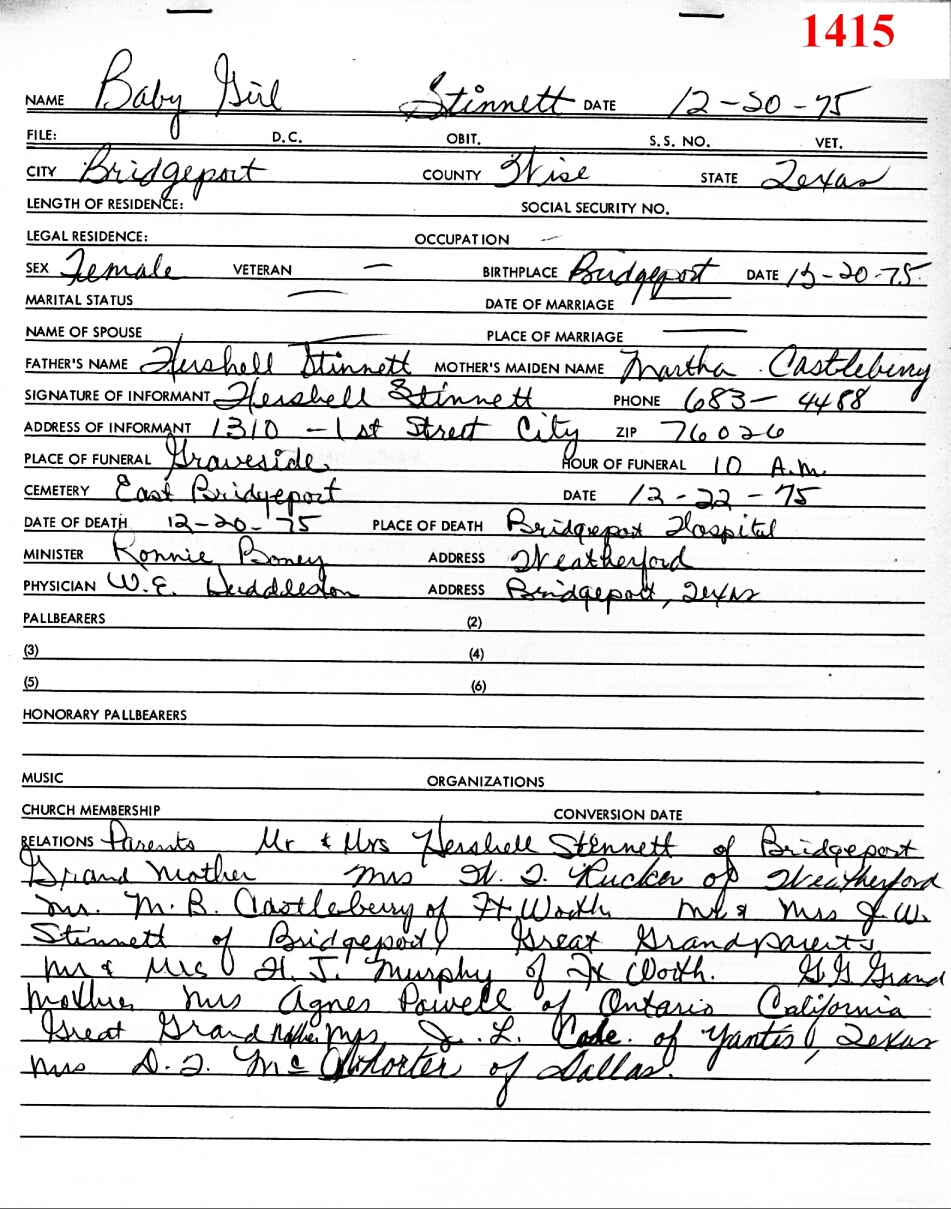 1415
NAME Baby Girl Stinnett DATE 12-20-75
FILE: D.C. OBIT. S.S. NO. VET.
CITY Bridgeport COUNTY Wise STATE Texas
LENGTH OF RESIDENCE: SOCIAL SECURITY NO.
LEGAL RESIDENCE: OCCUPATION —
SEX Female VETERAN — BIRTHPLACE Bridgeport DATE 12-20-75
MARITAL STATUS — DATE OF MARRIAGE —
NAME OF SPOUSE — PLACE OF MARRIAGE —
FATHER'S NAME Hershell Stinnett MOTHER'S MAIDEN NAME Martha Castleberry
SIGNATURE OF INFORMANT Hershell Stinnett PHONE 683-4488
ADDRESS OF INFORMANT 1310 - 1st Street City ZIP 76026
PLACE OF FUNERAL Graveside HOUR OF FUNERAL 10 A.M.
CEMETERY East Bridgeport DATE 12-22-75
DATE OF DEATH 12-20-75 PLACE OF DEATH Bridgeport Hospital
MINISTER Ronnie Boney ADDRESS Weatherford
PHYSICIAN W.E. Huddleston ADDRESS Bridgeport, Texas
PALLBEARERS (2)
(3) (4)
(5) (6)
HONORARY PALLBEARERS
MUSIC ORGANIZATIONS
CHURCH MEMBERSHIP CONVERSION DATE
RELATIONS Parents Mr & Mrs Hershell Stennett of Bridgeport
Grand Mother Mrs W. T. Rucker of Weatherford
Mr. M. B. Castleberry of Ft Worth Mr & Mrs J. W.
Stinnett of Bridgeport Great Grandparents
Mr & Mrs H. J. Murphy of Ft Worth. G G Grand
Mother Mrs Agnes Powell of Ontario California
Great Grand Mother Mrs J. L. Cade of Yantis, Texas
Mrs D. T. McWhorter of Dallas.